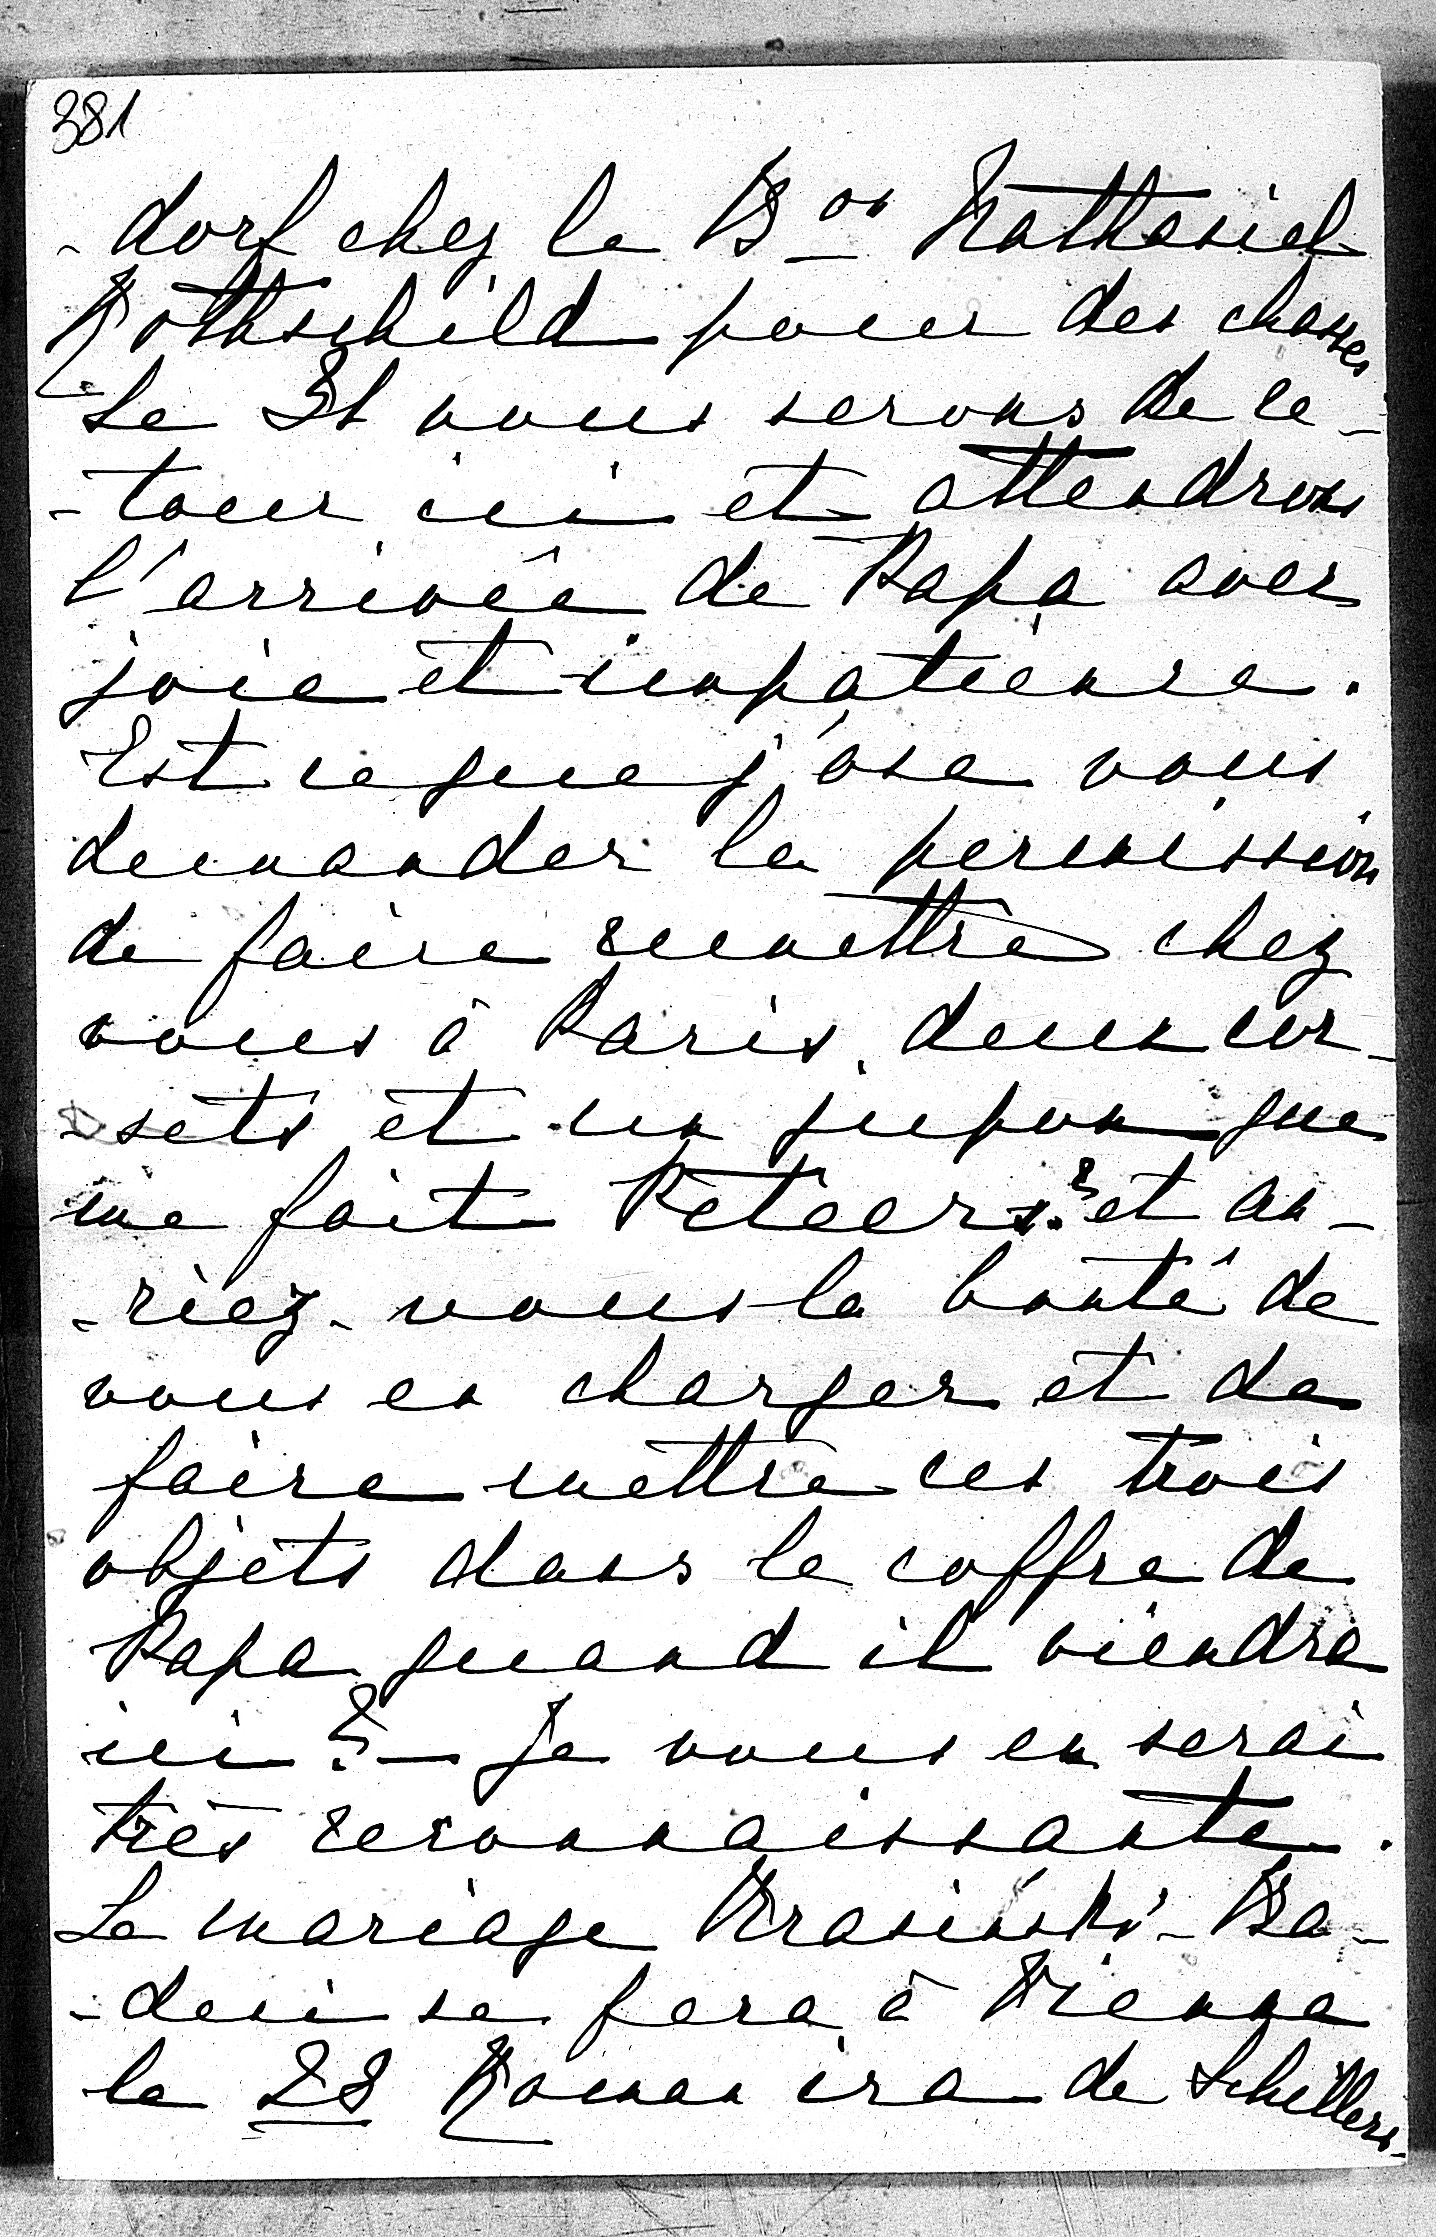 381
- dorf chez le Bon Nathaniel
Rothschild pour des chasses
Le 31 nous serons de re-
- tour ici et attendrons
l'arrivée de Papa avec
joie et impatience.
Est ce que j'ose vous
demander la permission
de faire remettre chez
vous à Paris, deux cor-
- sets et un jupon que
me fait ? et au-
- riez-vous la bonté de
vous en charger et de
faire mettre ces trois
objets dans le coffre de
Papa quand il viendra
ici ? — Je vous en serai
très reconnaissante.
Le mariage Krasiński-Ba-
- deni se fera à Vienne
le 28 Roman ira de Schillers-